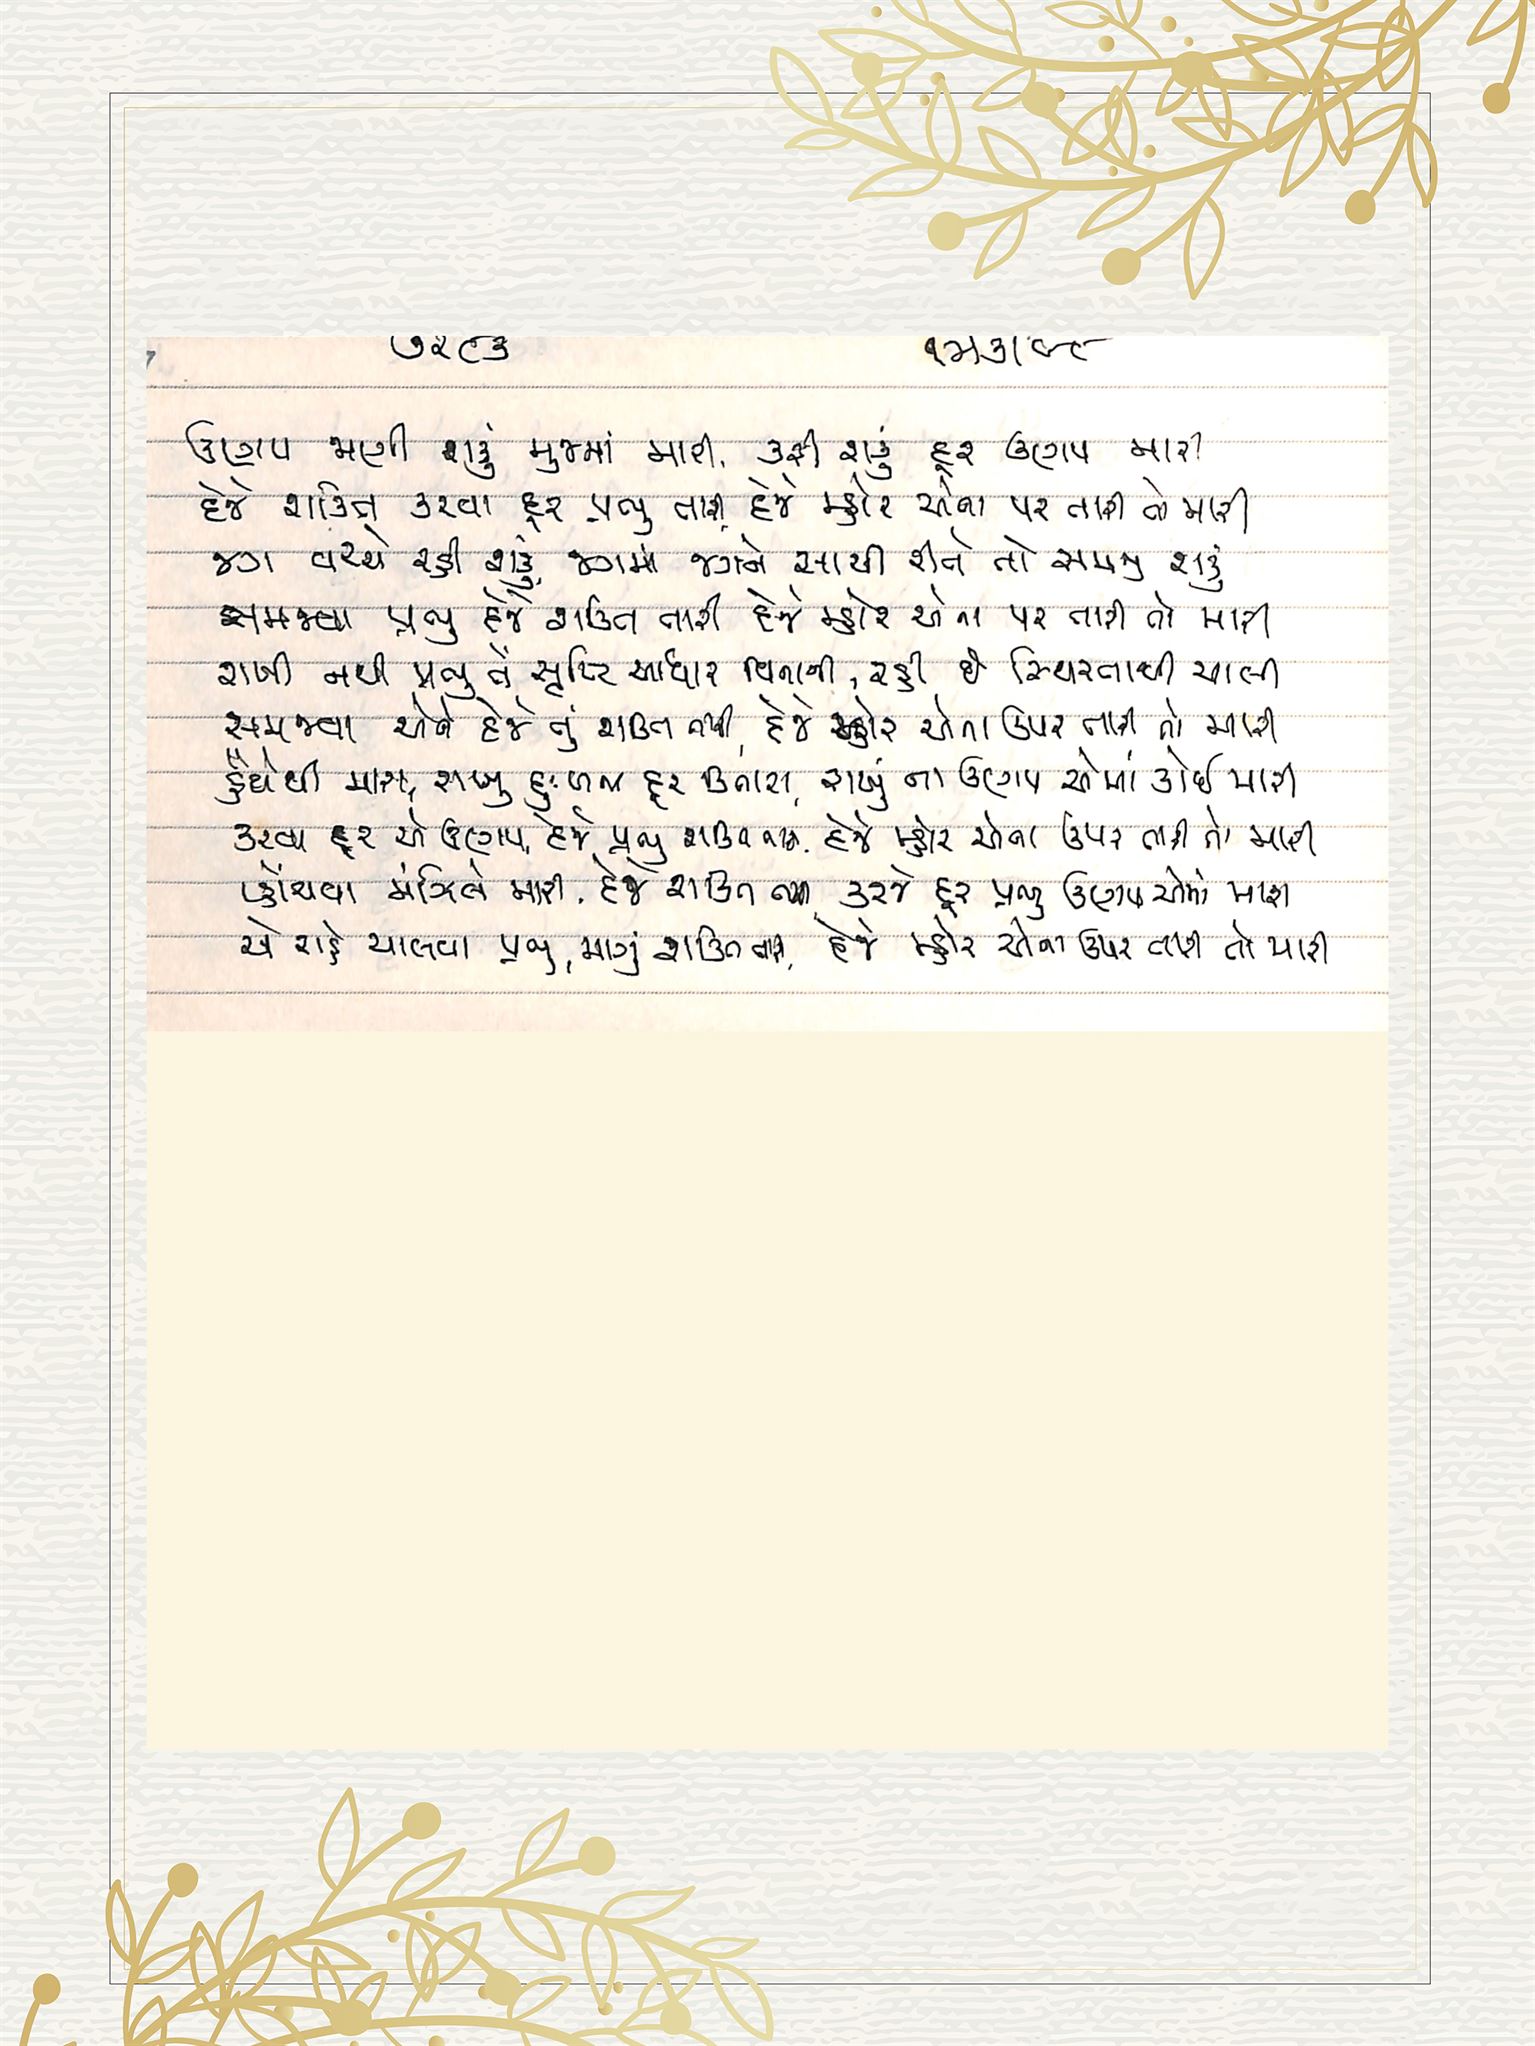 ૭૨૯૩
ઉણપ જાણી શકું મુજમાં મારી, કરી શકું દૂર ઉણપ મારી
દેજે શક્તિ કરવા દૂર પ્રભુ તારી, દેજે મ્હોર એના પર તારી તો મારી
જગ વચ્ચે રહી શકું, જગમાં જગને સાચી રીતે તો સમજી શકું
સમજવા પ્રભુ દેજે શક્તિ તારી દેજે મ્હોર એના પર તારી તો મારી
રાખી નથી પ્રભુ તેં સૃષ્ટિ આધાર વિનાની, રહી છે સ્થિરતાથી ચાલી
સમજવા એને દેજે તું શક્તિ તારી, દેજે મ્હોર એના ઉપર તારી તો મારી
હૈયેથી મારા, રાખું દુઃખના દૂર કિનારા, રાખું ના ઉણપ એમાં કોઈ મારી
કરવા દૂર એ ઉણપ, દેજે પ્રભુ શક્તિ તારી, દેજે મ્હોર એના ઉપર તારી તો મારી
પ્હોંચવા મંઝિલે મારી, દેજે શક્તિ તારી કરજે દૂર પ્રભુ ઉણપ એમાં મારી
એ રાહે ચાલવા પ્રભુ, માગું શક્તિ તારી, દેજે મ્હોર એના ઉપર તારી તો મારી